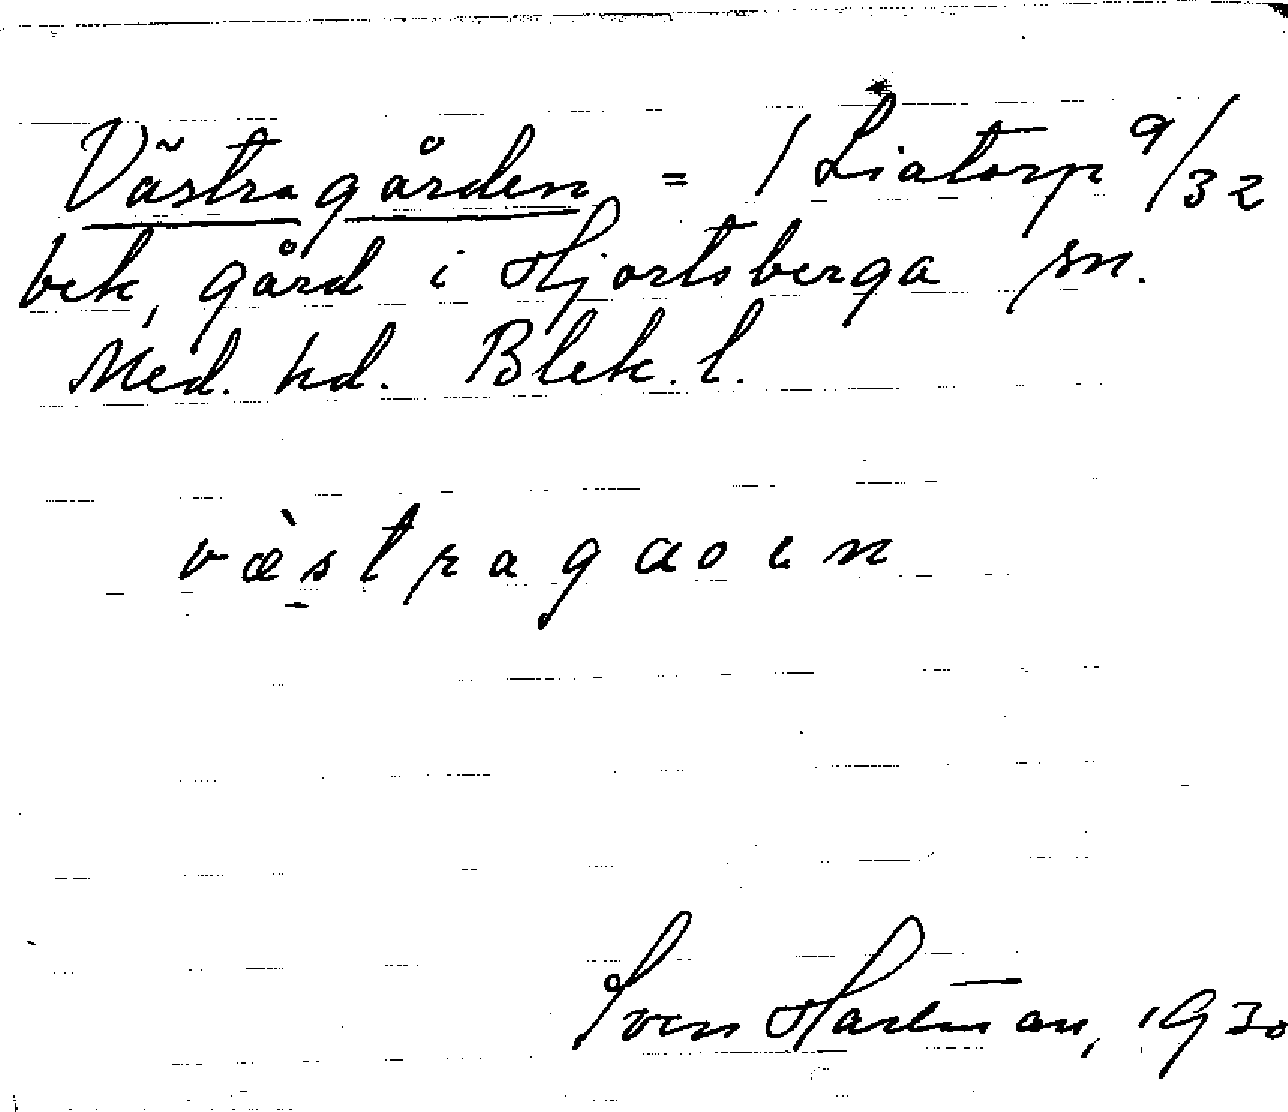 Västragården = 1 Liatorp 9/32
bek, gård i Hjortsberga sn.
Med. hd. Blek. l.
væ̀stragaoen
Sven Hartman, 1930